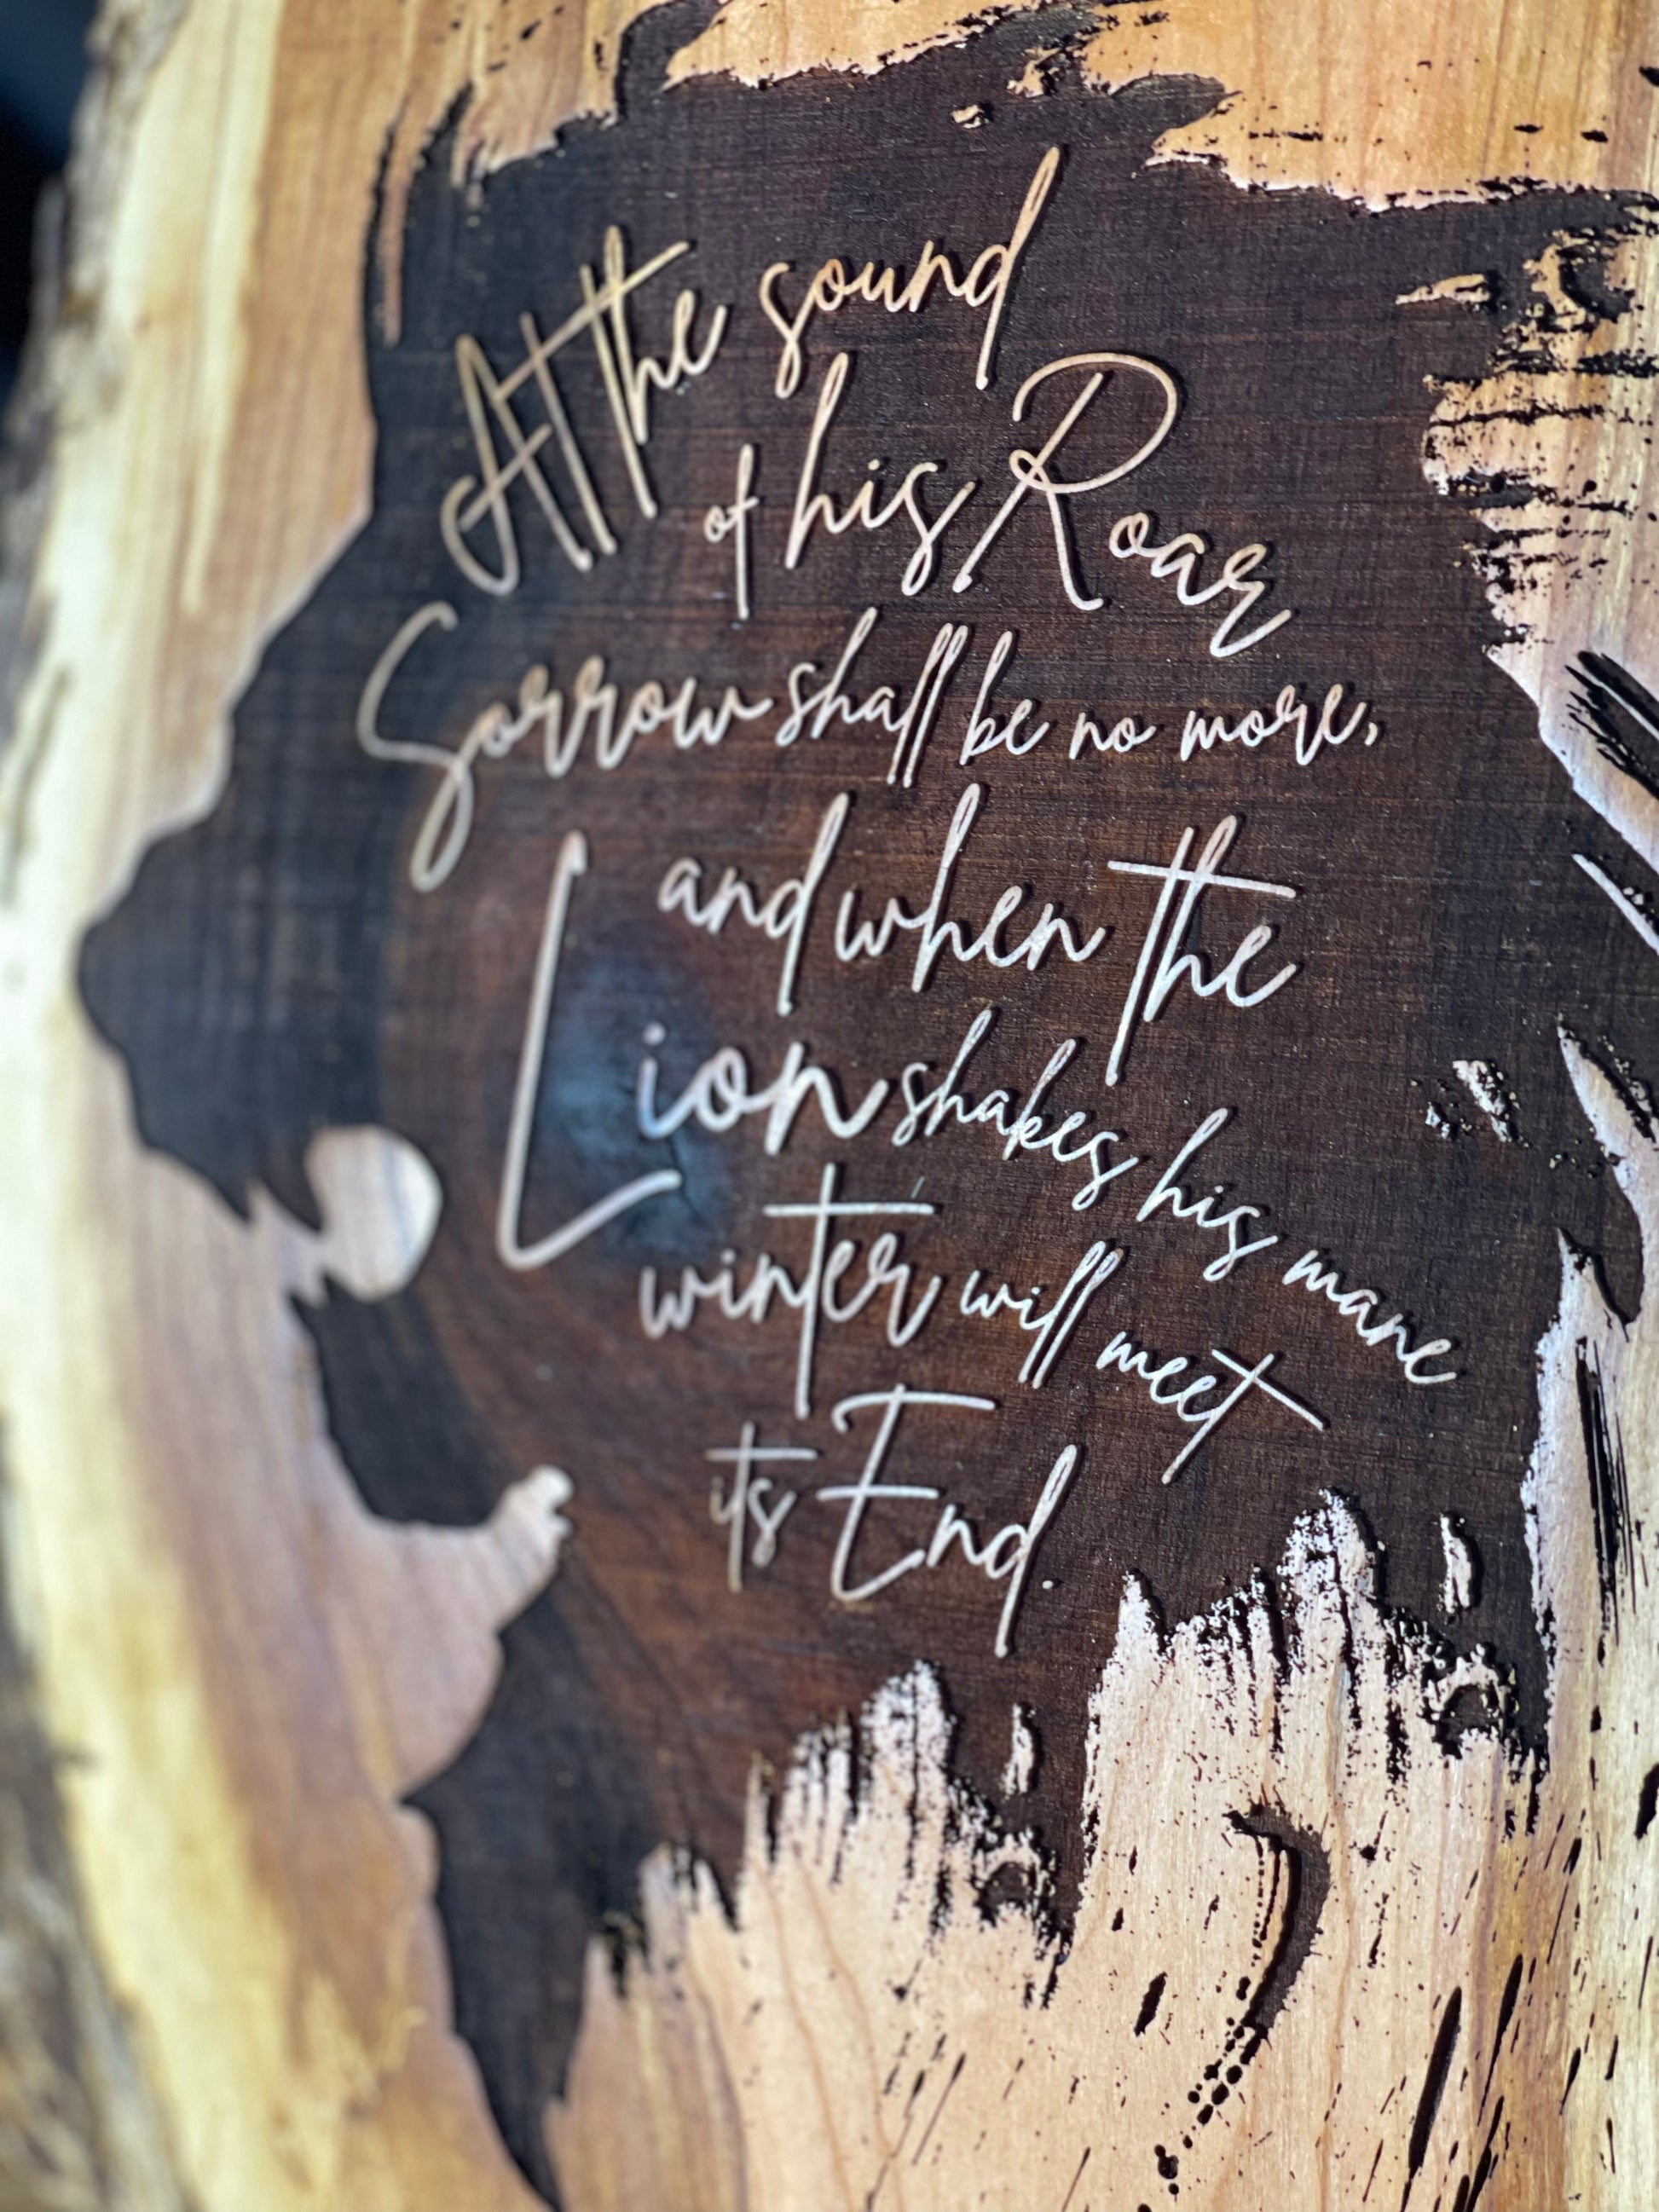 At the sound
of his Roar
Sorrow shall be no more,
and when the
Lion shakes his mane
winter will meet
its End.